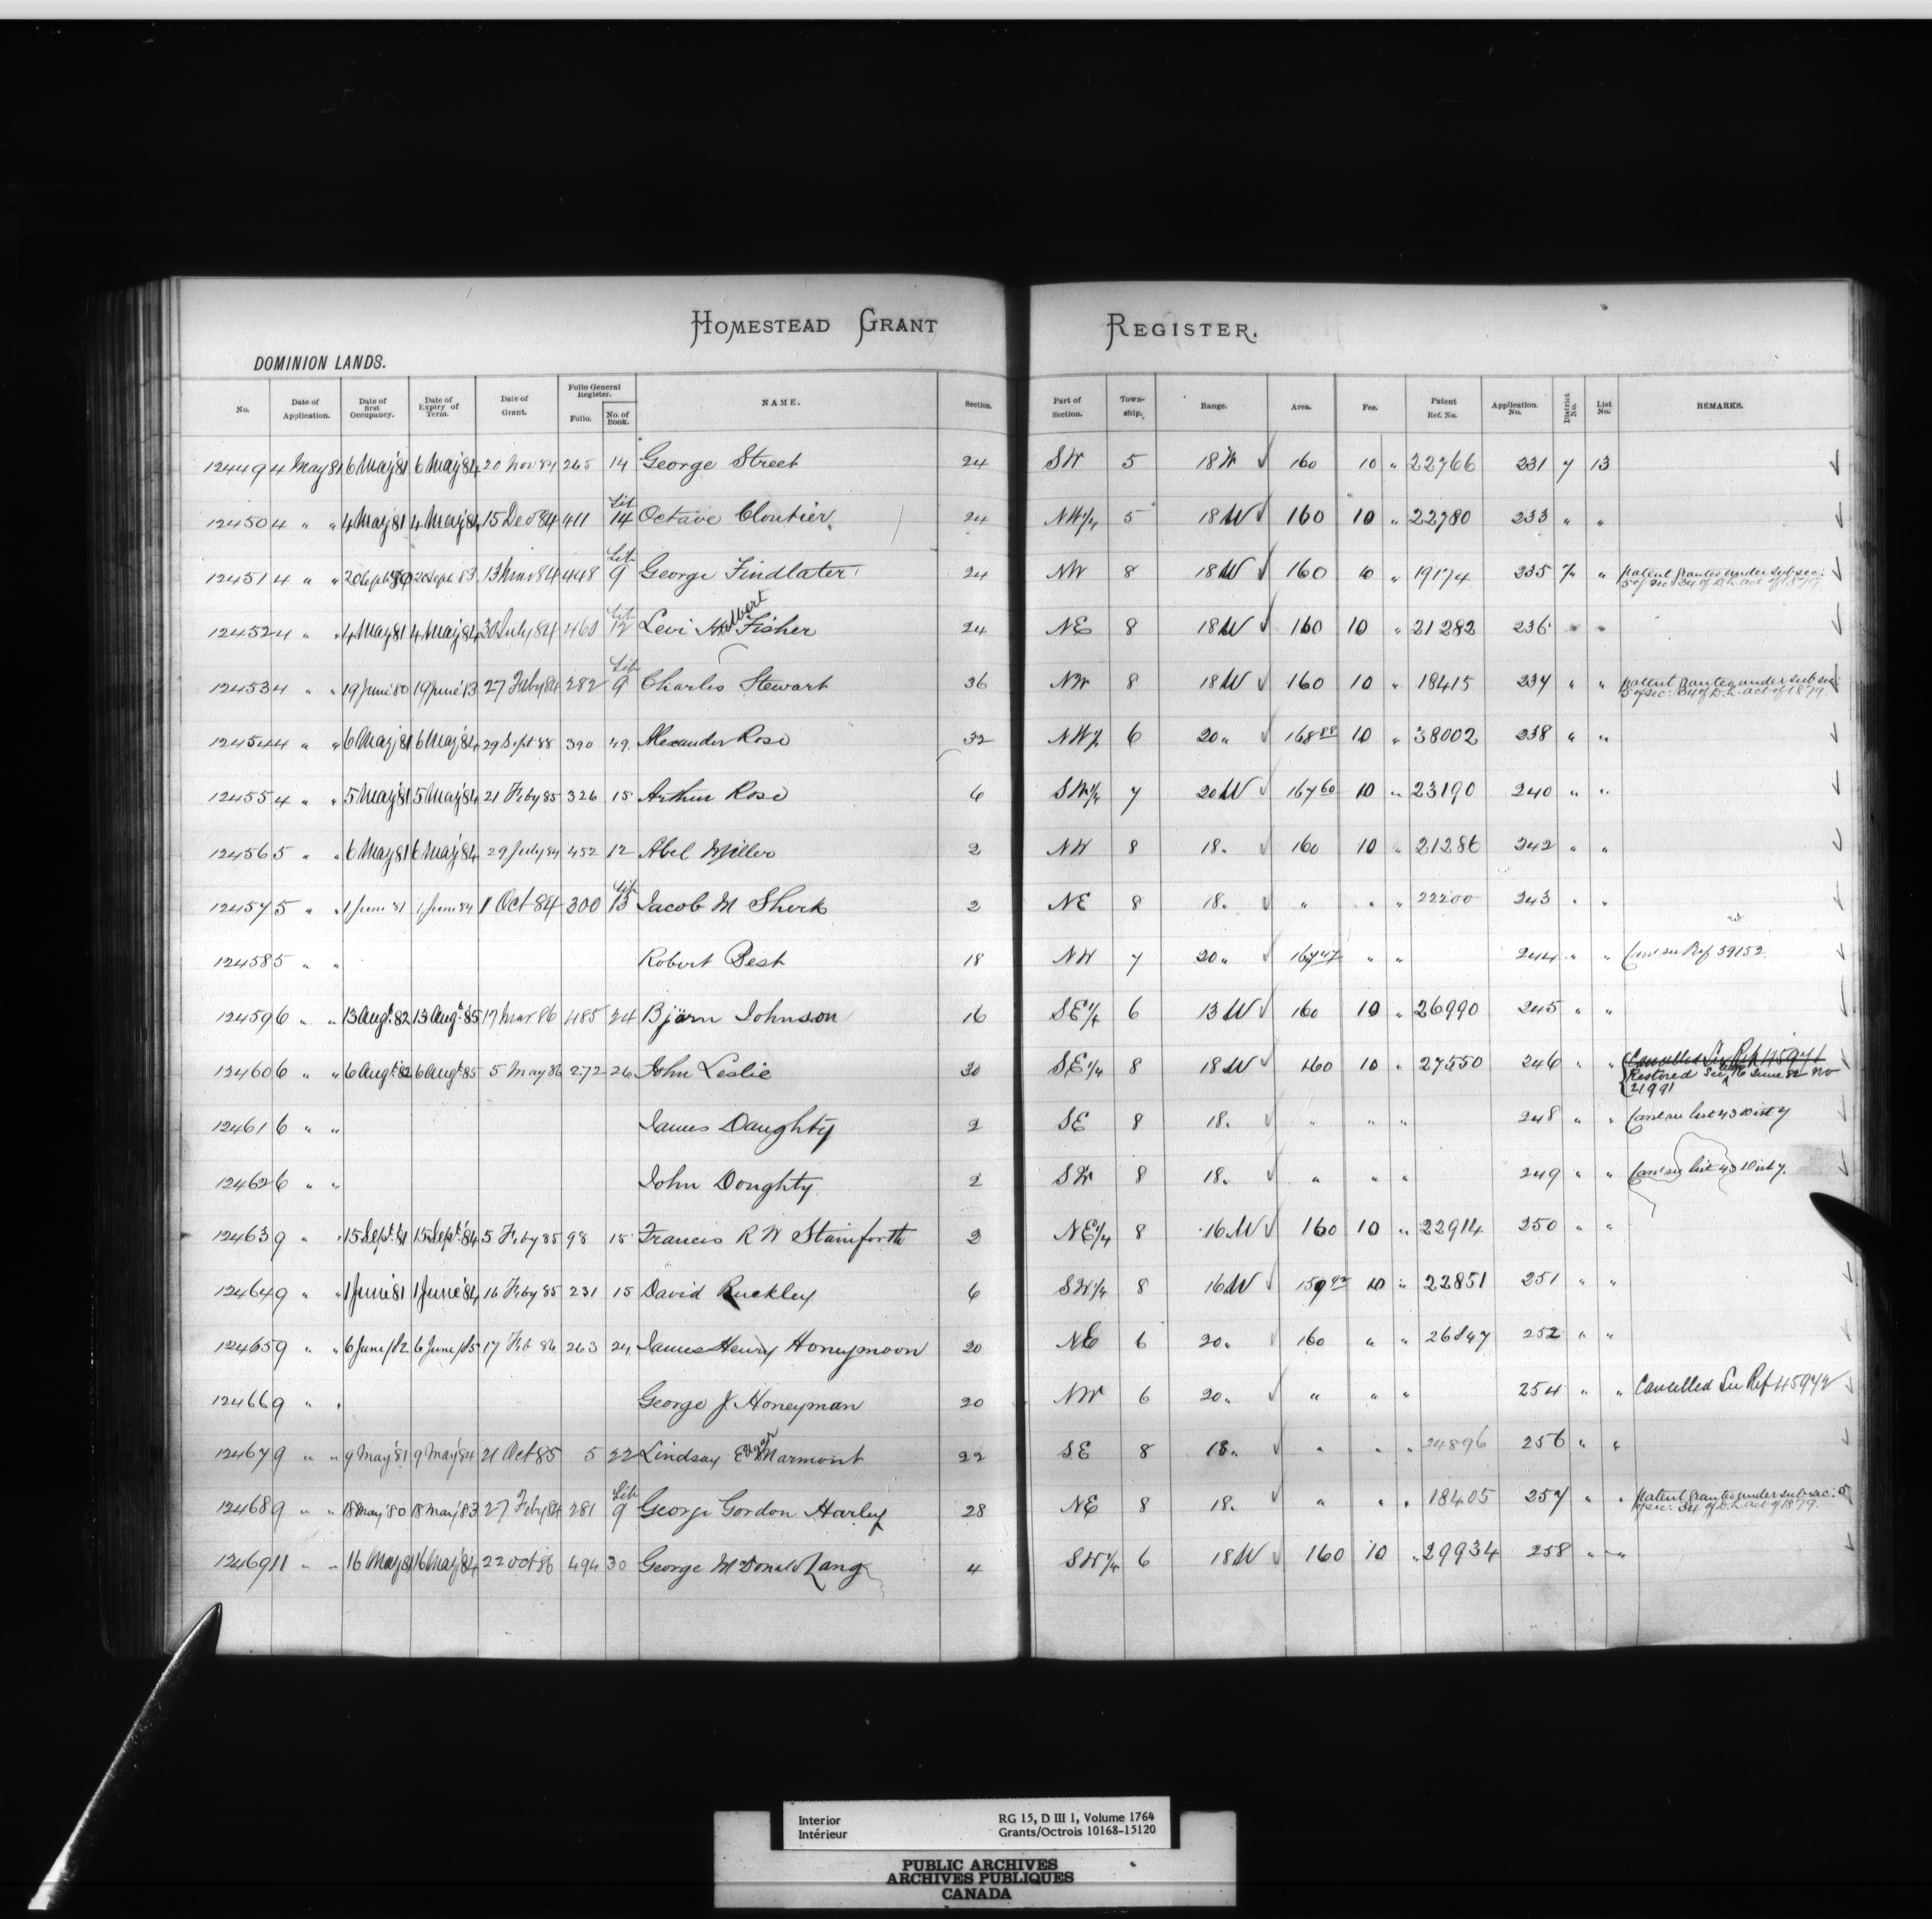 HOMESTEAD GRANT REGISTER.
DOMINION LANDS.
No. Date of Application. Date of first Occupancy. Date of Expiry of Term. Date of Grant. Folio General Register. Folio. No. of Book. NAME. Section. Part of Section. Township. Range. Area. Fee. Patent Ref. No. Application No. District No. List No. REMARKS.
12449 4 May 81 6 May 81 6 May 84 20 Nov 84 265 14 George Street 24 SW 5 18 W 160 10 " 22766 231 7 13
12450 4 " " 4 May 81 4 May 84 15 Dec 84 411 Lit 14 Octave Cloutier 24 NW1/4 5 18 W 160 10 " 22780 233 " "
12451 4 " " 20 Sept 80 20 Sept 83 13 Mar 84 448 Lit 9 George Findlater 24 NW 8 18 W 160 10 " 19174 235 " " Patent granted under sub sec: 5 of sec: 34 of D.L. act of 1879.
12452 4 " " 4 May 81 4 May 84 30 July 84 460 Lit 12 Levi Halbert Fisher 24 NE 8 18 W 160 10 " 21282 236 " "
12453 4 " " 19 June 80 19 June 83 27 Feby 84 282 Lit 9 Charles Stewart 36 NW 8 18 W 160 10 " 18415 237 " " Patent granted under sub sec: 5 of sec: 34 of D.L. act of 1879.
12454 4 " " 6 May 81 6 May 84 29 Sept 88 390 49 Alexander Rose 32 NW 6 20 " 168 88 10 " 38002 238 " "
12455 4 " " 5 May 81 5 May 84 21 Feby 85 326 15 Arthur Rose 6 SW1/4 7 20 W 167 60 10 " 23190 240 " "
12456 5 " " 6 May 81 6 May 84 29 July 84 452 12 Abel Miller 2 NW 8 18 " 160 10 " 21286 242 " "
12457 5 " " 1 June 81 1 June 84 1 Oct 84 300 Lit 13 Jacob M Sherk 2 NE 8 18 " " " " 22200 243 " "
12458 5 " " Robert Best 18 NW 7 20 " 167 47 " " 244 " " Canc see Ref 59152
12459 6 " " 13 Augt. 82 13 Augt. 85 17 Mar 86 485 24 Bjarn Johnson 16 SE1/4 6 13 W 160 10 " 26990 245 " "
12460 6 " " 6 Augt. 82 6 Augt. 85 5 May 86 272 26 John Leslie 30 SE1/4 8 18 W 160 10 " 27550 246 " " Cancelled See Ref 45971
Restored See 16 June 82 no
21991
12461 6 " " James Daughty 2 SE 8 18 " " " " 248 " " Canc see list 43 Dist 7
12462 6 " " John Doughty 2 SW 8 18 " " " " 249 " " Canc see list 43 Dist 7.
12463 9 " " 15 Sept. 81 15 Sept. 84 5 Feby 85 98 15 Francis R W Stainforth 2 NE1/4 8 16 W 160 10 " 22914 250 " "
12464 9 " " 1 June 81 1 June 84 16 Feby 85 231 15 David Ruckley 6 SW1/4 8 16 W 159 92 10 " 22851 251 " "
12465 9 " " 6 June/82 6 June/85 17 Feb 86 263 24 James Henry Honeymoon 20 NE 6 20 " 160 " " 26847 252 " "
12466 9 " " George J. Honeyman 20 NW 6 20 " " " " 254 " " Cancelled See Ref 45972
12467 9 " " 9 May 81 9 May 84 21 Oct 85 5 22 Lindsay Edgar Marmont 22 SE 8 18 " " " " 24896 256 " "
12468 9 " " 18 May 80 18 May 83 27 Feby 84 281 Lit 9 George Gordon Harley 28 NE 8 18 " " " " 18405 257 " " Patent granted under sub sec: 5 of sec: 34 of D.L. act of 1879.
12469 11 " " 16 May 81 16 May 84 22 Oct 86 494 30 George McDonald Lang 4 SW1/4 6 18 W 160 10 " 29934 258 " "
Interior RG 15, D III 1, Volume 1764
Intérieur Grants/Octrois 10168-15120
PUBLIC ARCHIVES
ARCHIVES PUBLIQUES
CANADA